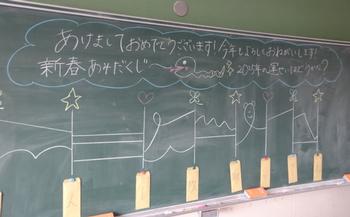 あけましておめでとうございます!今年もよろしくおねがいします!
新春あみだくじ 2025年の運せいはどうかな?